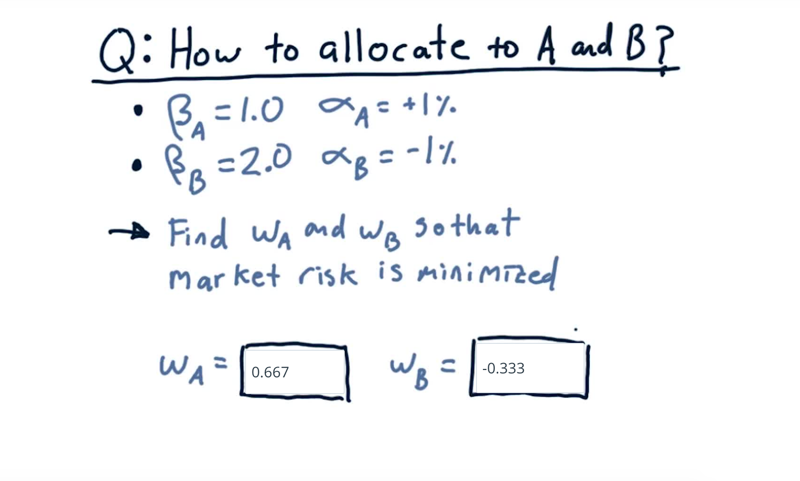 Q: How to allocate to A and B?
• βA = 1.0 αA = +1%
• βB = 2.0 αB = -1%
→ Find wA and wB so that
market risk is minimized
wA = 0.667 wB = -0.333